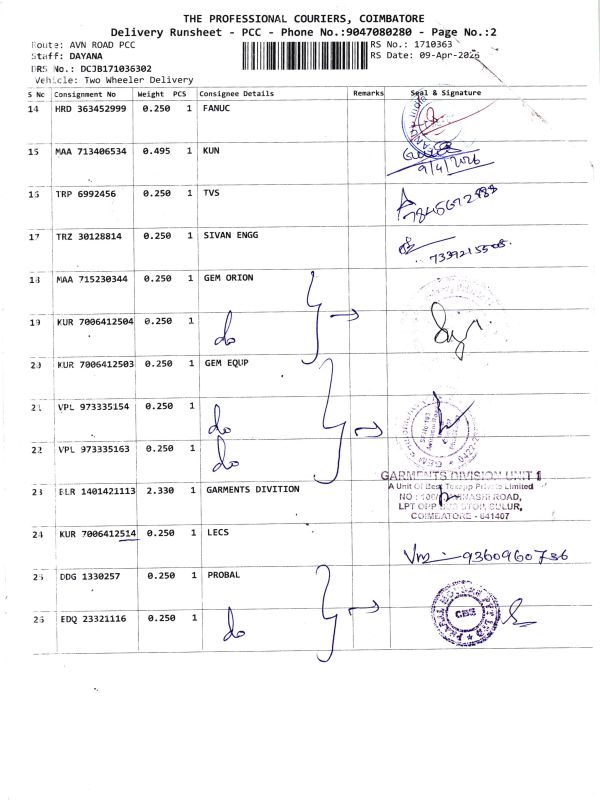 THE PROFESSIONAL COURIERS, COIMBATORE
Delivery Runsheet - PCC - Phone No.:9047080280 - Page No.:2
Route: AVN ROAD PCC RS No.: 1710363
Staff: DAYANA RS Date: 09-Apr-2026
DRS No.: DCJB171036302
Vehicle: Two Wheeler Delivery
S No Consignment No Weight PCS Consignee Details Remarks Seal & Signature
14 HRD 363452999 0.250 1 FANUC
15 MAA 713406534 0.495 1 KUN
9/4/2026
16 TRP 6992456 0.250 1 TVS
17 TRZ 30128814 0.250 1 SIVAN ENGG
7339215508
18 MAA 715230344 0.250 1 GEM ORION
19 KUR 7006412504 0.250 1 do
20 KUR 7006412503 0.250 1 GEM EQUP
21 VPL 973335154 0.250 1 do
22 VPL 973335163 0.250 1 do
GARMENTS DIVISION UNIT 1
23 BLR 1401421113 2.330 1 GARMENTS DIVITION
A Unit Of Best Private Limited
ROAD,
SULUR,
COIMBATORE - 641407
24 KUR 7006412514 0.250 1 LECS
9360960736
25 DDG 1330257 0.250 1 PROBAL
CBE
26 EDQ 23321116 0.250 1 do